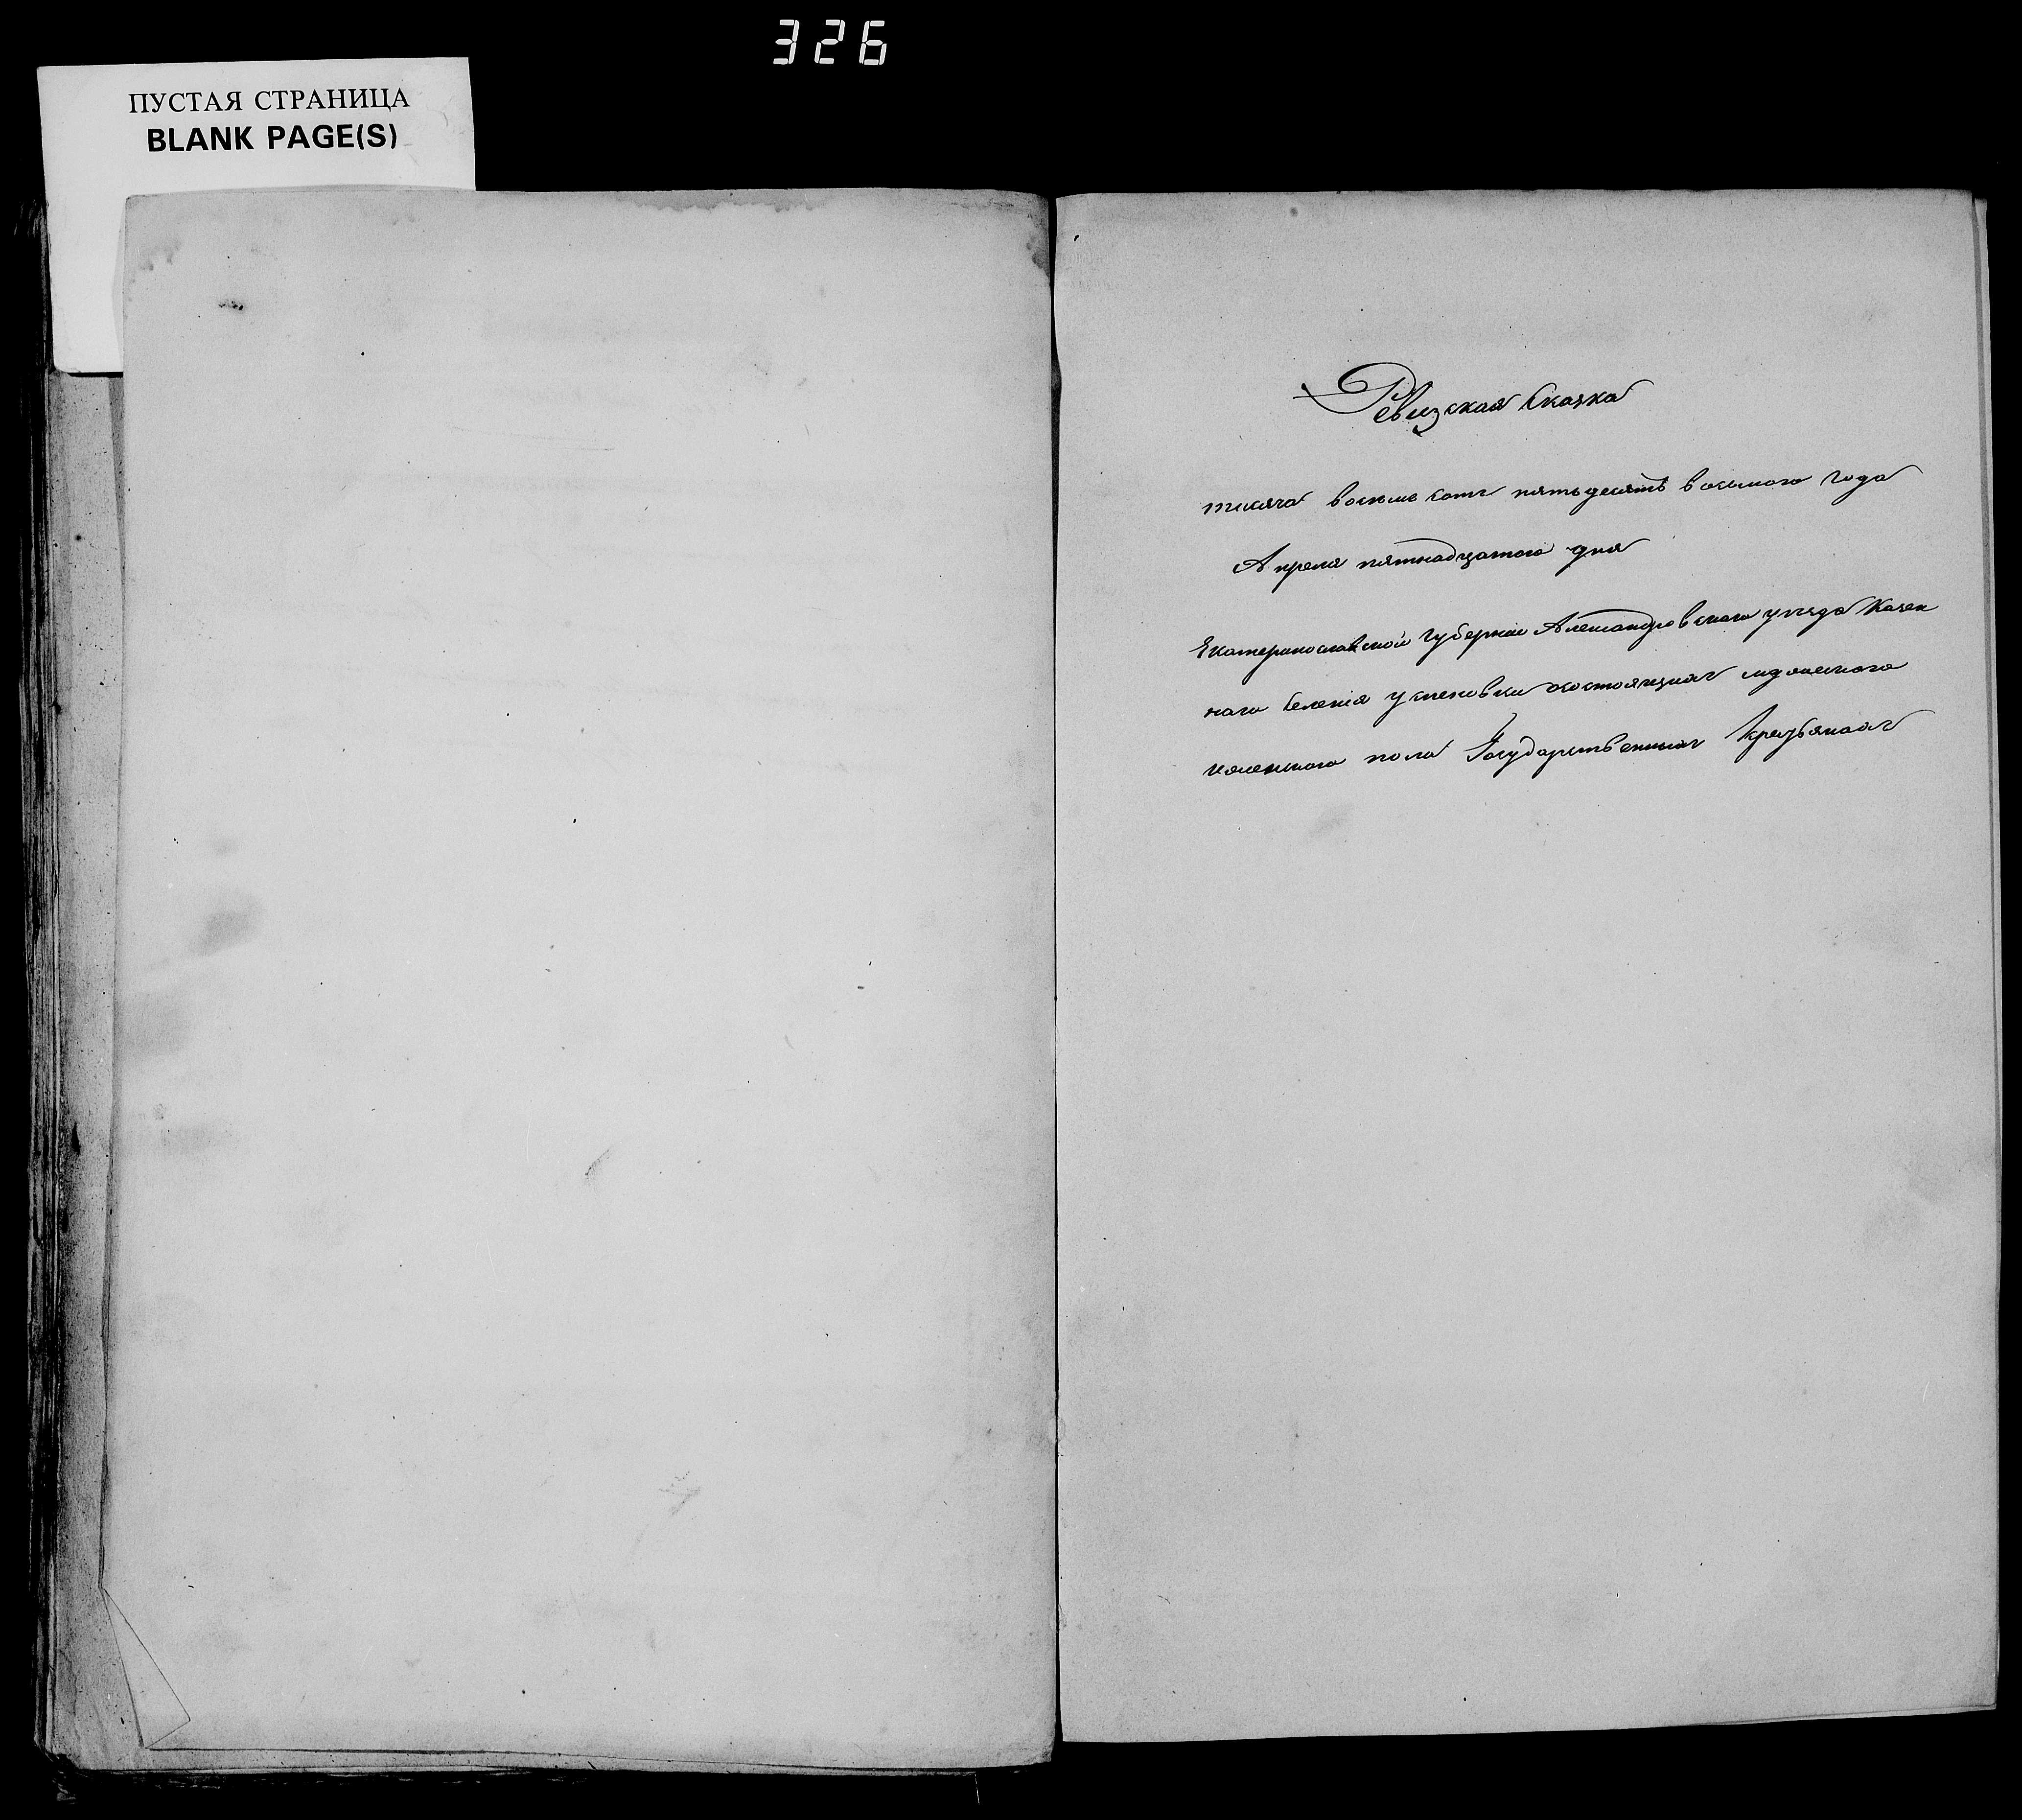 326
ПУСТАЯ СТРАНИЦА
BLANK PAGE(S)
Ревизская Сказка
тысяча восемь сотъ пятьдесятъ восьмого года
Апреля пятнадцатого дня
Екатеринославской губернии Александровского уезда Казен
наго Селенія Успеновки состоящихъ мужеского
женского пола Государственныхъ Крестьянахъ